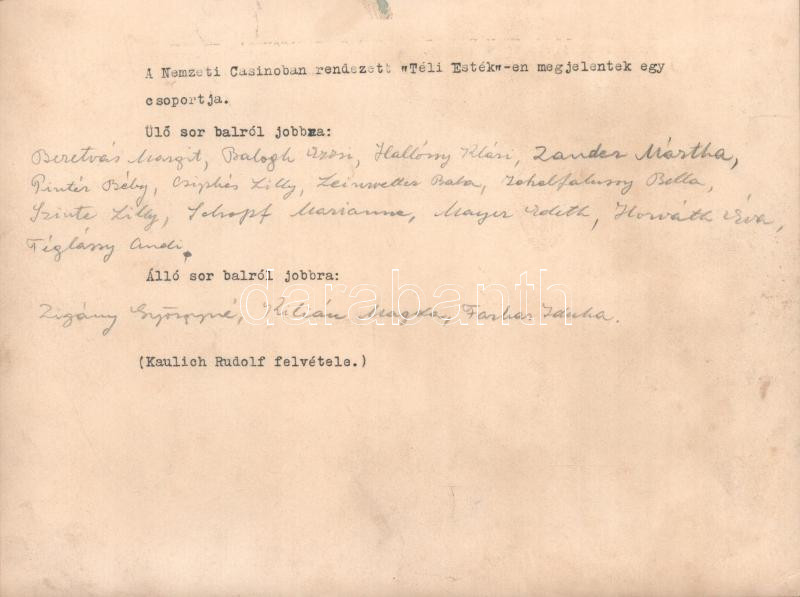 A Nemzeti Casinoban rendezett "Téli Esték"-en megjelentek egy
csoportja.
Ülő sor balról jobbra:
Beretvás Margit, Balogh Izzsi, Hallóssy Klári, Zander Mártha,
Pintér Béby, Csiphés Lilly, Leinwetter Baba, Jekelfalussy Bella,
Szinte Lilly, Schopf Marianne, Mayer Edith, Horváth Éva,
Téglássy Andi,
Álló sor balról jobbra:
Zigány Györgyné, Kilián Magda, Farkas Icuka.
darabanth
(Kaulich Rudolf felvétele.)